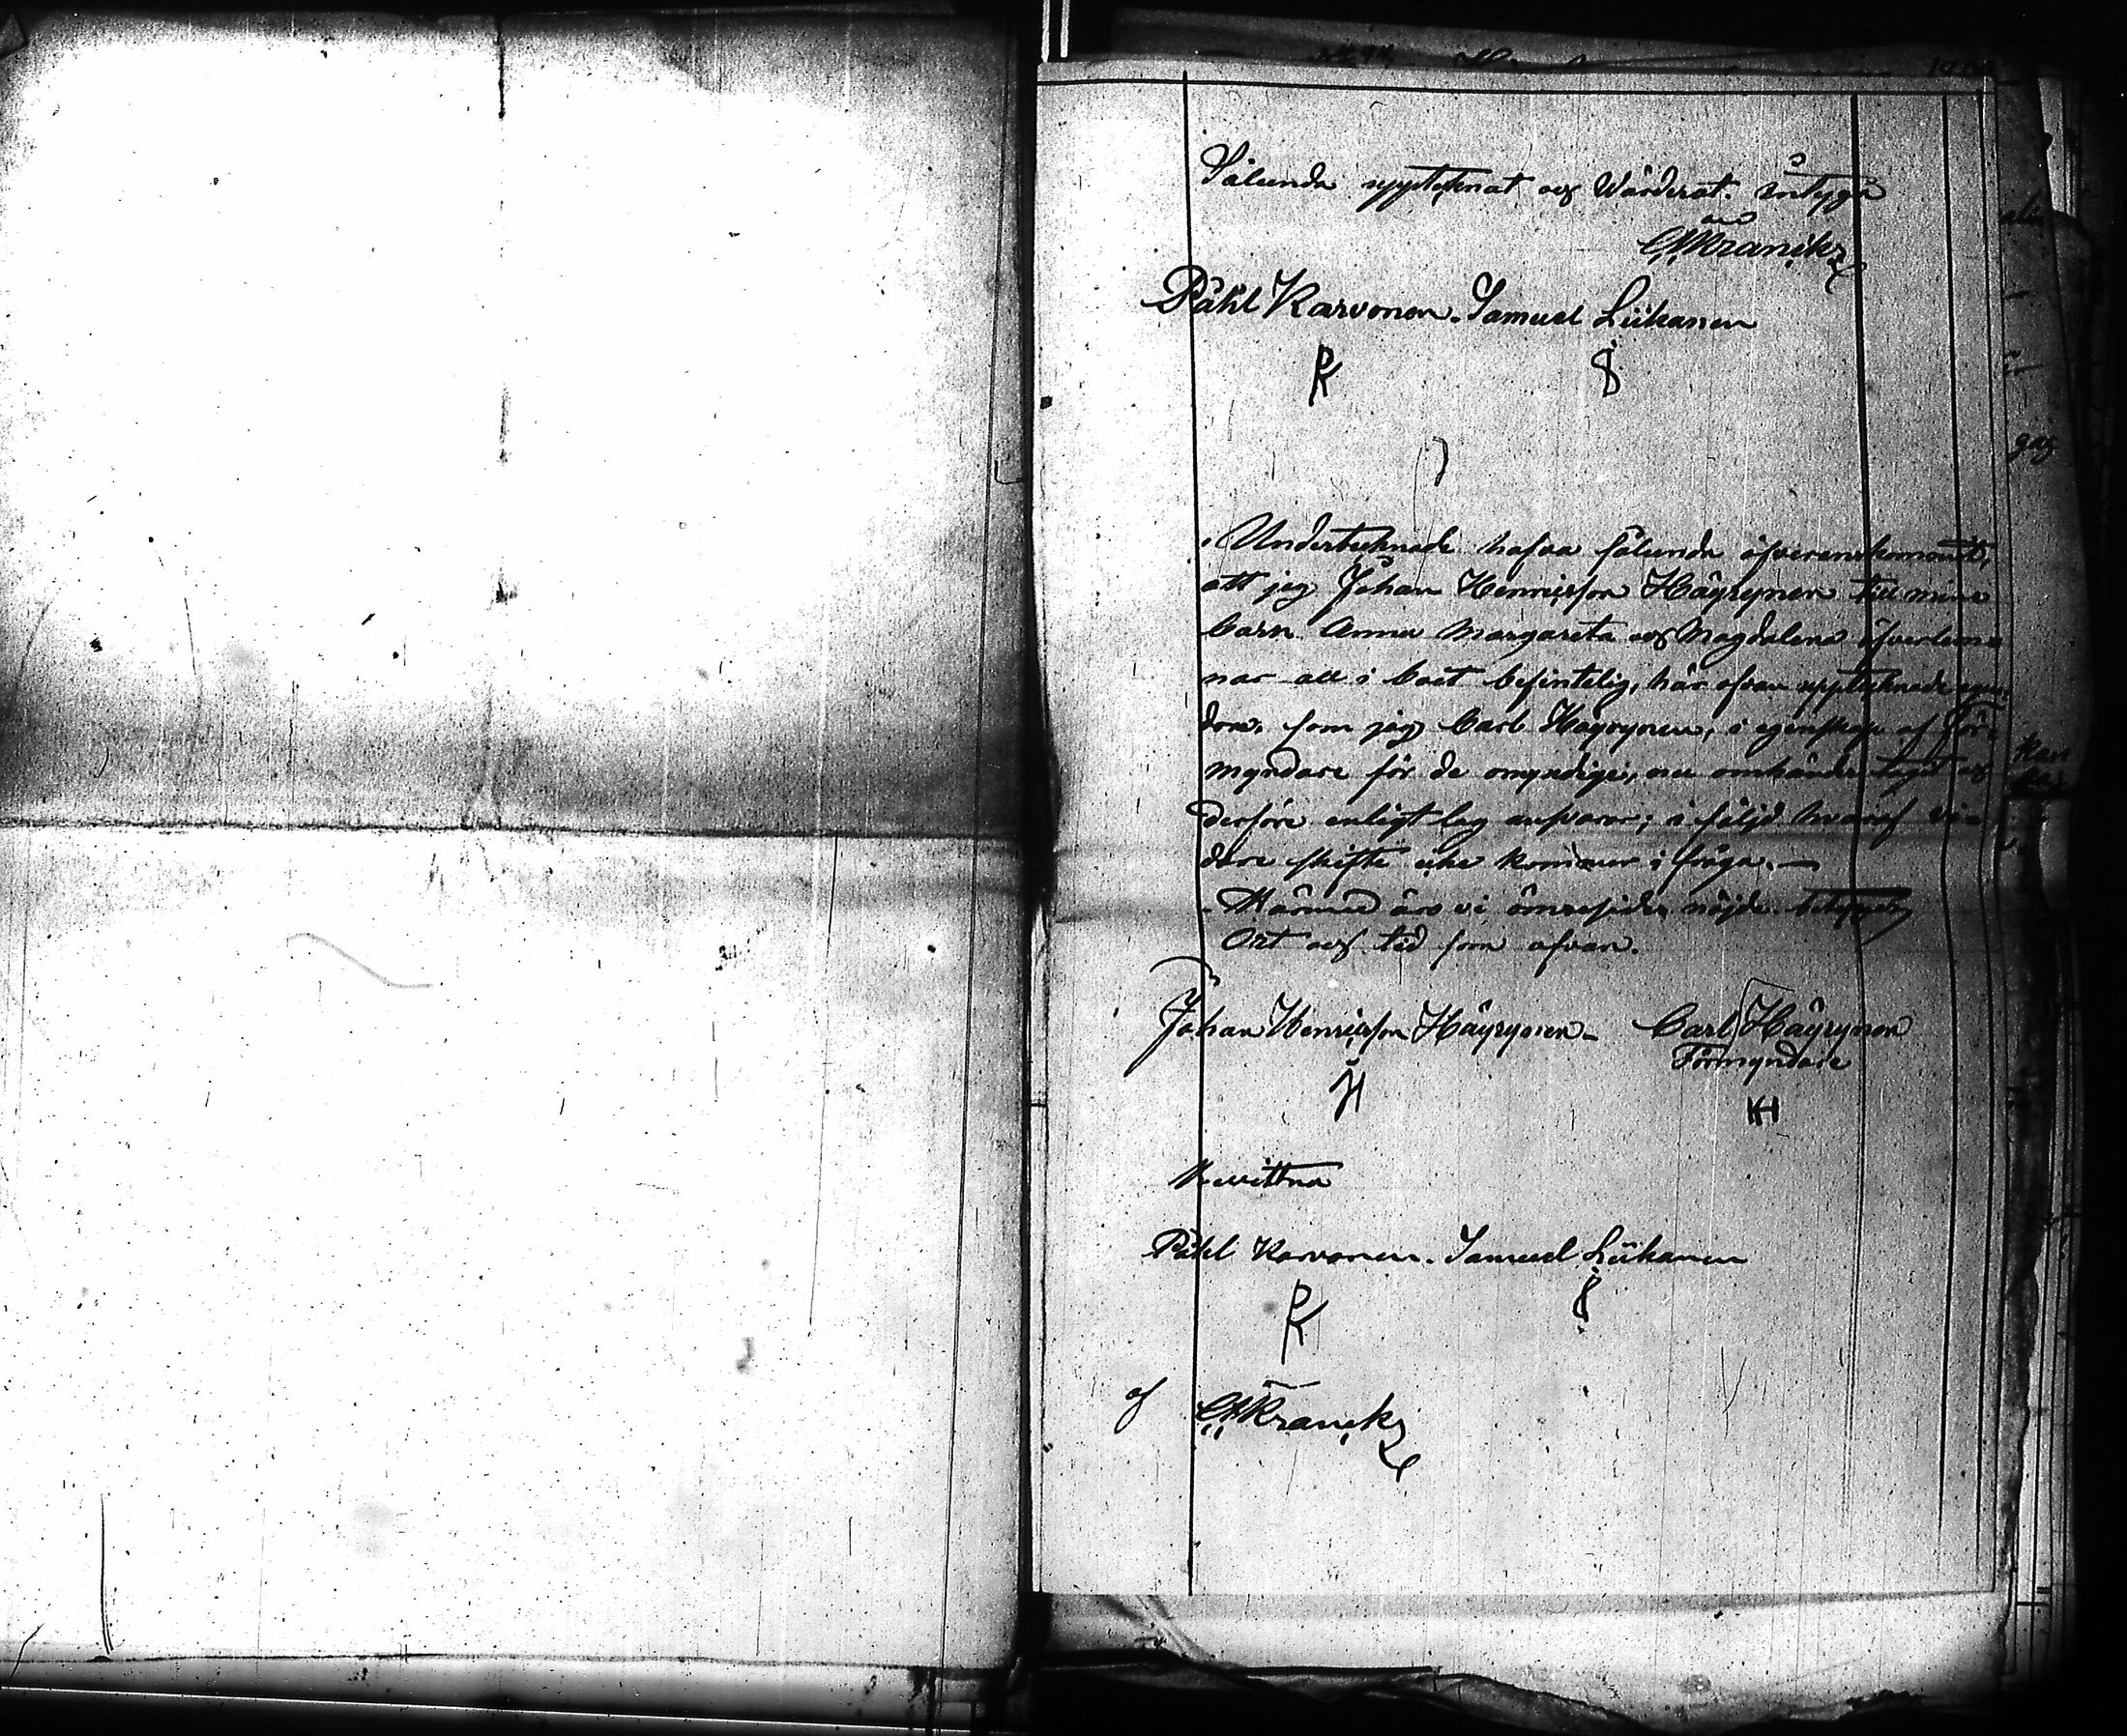 Sålunda upptecknat och Wärderat. intyga
CMKranck
Påhl Karvonen. Samuel Liikanen
PK
Undertecknade hafva sålunda öfverenskommit,
att jag Johan Henricsson Häyrynen till mina
barn Anna Margareta och Magdalena öfverlem-
nar all i boet befintelig, här ofvan upptecknade egen-
dom, som jag Carl Häyrynen, i egenskap af För-
myndare för de omyndige, nu omhänder tagit och
derföre enligt lag ansvarar; i följd hvaraf vi-
dare skifte icke kommer i fråga. —
Härmed äro vi ömsesidigt nöjde. betyga
Ort och tid som ofvan.
Johan Henricsson Häyrynen - Carl Häyrynen
Förmyndare
JH KH
Bevittna
Påhl Karvonen. Samuel Liikanen
PK
af CMKranck